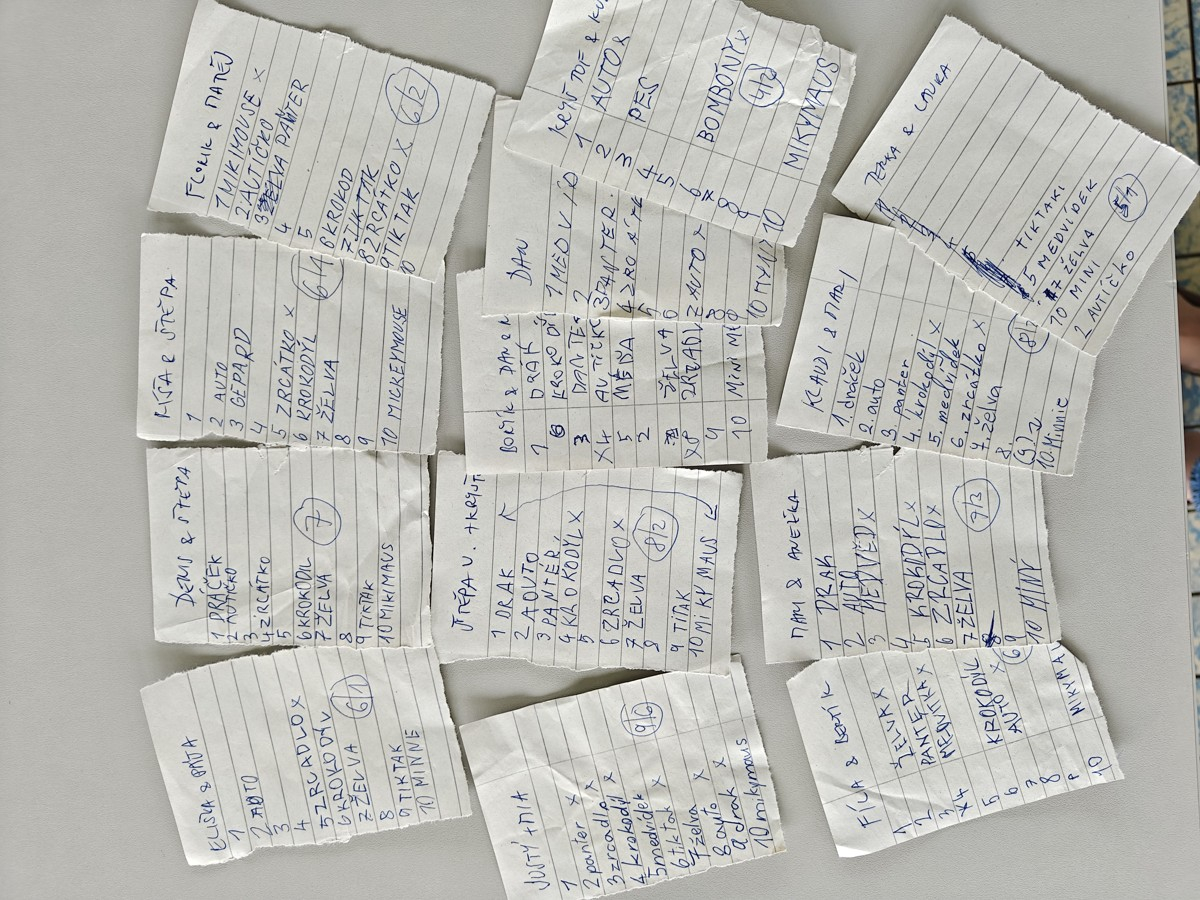 FLORIK & MATĚJ
1 MIKIMOUSE X
2 AUTÍČKO
3 PANTER
4
5
6 KROKOD
7 TIKTAK
8 ZRCÁTKO X
9 TIKTAK
10
6/2
KÝŤA & ŠTĚPA
1
2 AUTO
3 GEPARD
4
5 ZRCÁTKO X
6 KROKODÝL
7 ŽELVA
8
9
10 MICKEYMOUSE
6/1
& ŠTĚPA
1 DRÁČEK
2 AUTÍČKO
3
4 ZRCÁTKO
5
6 KROKODIL
7 ŽELVA
8
9 TIKTAK
10 MIKIMAUS
7
ELIŠKA & PÁŤA
1
2 AUTO
3
4
5 ZRCADLO X
6 KROKODÝV
7 ŽELVA
8
9 TIKTAK
10 MINNE
6/1
& KU
1 AUTO X
2
3 PES
4
5
6 BOMBÓNY X
7
8
9 MIKYMAUS
10
4/2
DAN
1 MEDVÍD
2
3 PANTER
4
5
6
7 AUTO X
8
9
10
BOŘÍK & DAN &
1 DRAK
6
3 PANTER
X4 AUTÍČKO
5 MÉĎA
2
ŽELVA
X8
9
10 MINI
ŠTĚPA V. + KRYŠT
1 DRAK
2 AOUTO
3 PANTÉR
4 KROKODÝL X
5
6 ZRCADVO X
7 ŽELVA
8
9 TIŤAK
10 MIKY MAUS
8/2
JUSTÝ + MIA
1
2 panter X
3 zrcadlo X
4 krokodýl X
5 medvídek
6 tiktak X
7 želva X
8 auto X
9 drak X
10 mikymaus
9/6
TERKA & LAURA
TIKTAKI
5 MEDVÍDEK
7 ŽELVA
10 MINI
2 AUTÍČKO
5/1
KLAUDI & MARI
1 dráček
2 auto
3. panter
4. krokodýl X
5. medvídek
6. zrcátko X
7. želva
8
9
10. Minnie
8/2
MAM & ANEŽKA
1 DRAK
2 AUTO
3 MEDVĚD X
4
5 KROKODÝL X
6 ZRCADLO X
7 ŽELVA
8
9
10 MINÝ
9/3
FÍLA & BOŘÍK
1 ŽELVA X
2 PANTER
3 MEDVÍĎKA X
X4
5 KROKODÍL
6 AUTO X
7
8
9
10